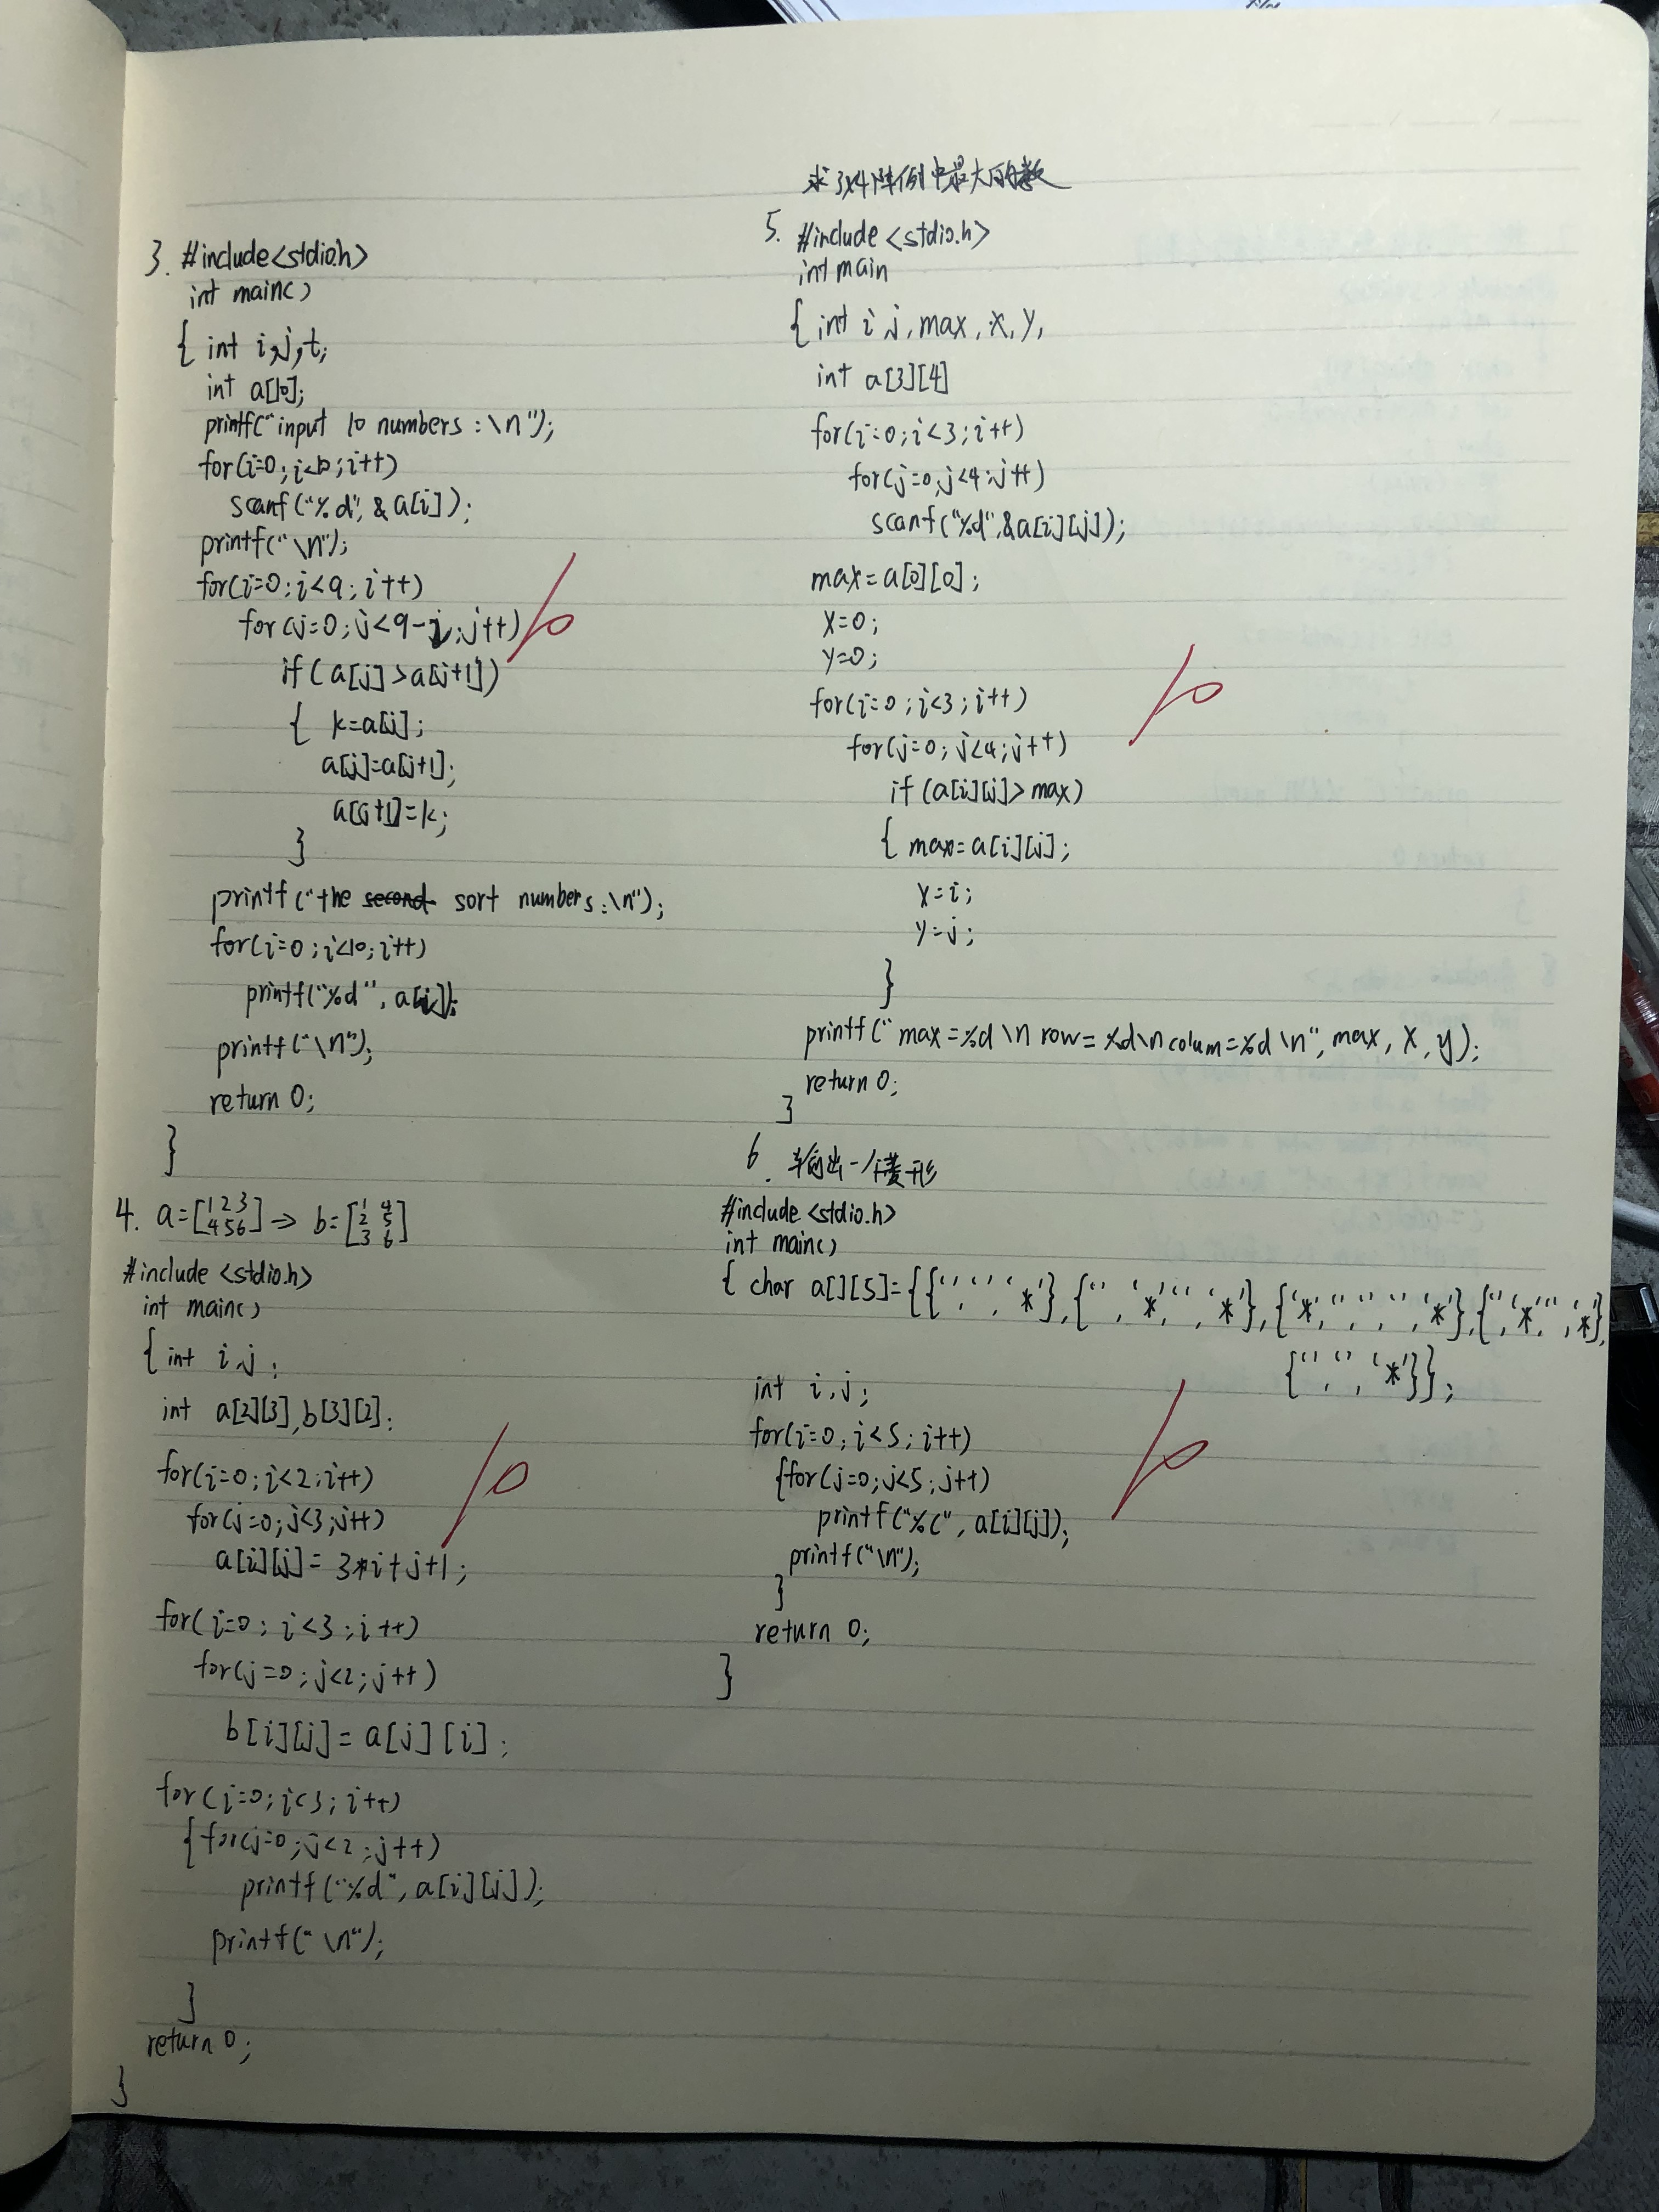 3. #include<stdio.h>
int main()
{ int i,j,t;
int a[10];
printf("input 10 numbers:\n");
for(i=0;i<10;i++)
scanf("%d",&a[i]);
printf("\n");
for(i=0;i<9;i++)
for(j=0;j<9-i;j++)
if(a[j]>a[j+1])
{ k=a[j];
a[j]=a[j+1];
a[j+1]=k;
}
printf("the second sort numbers:\n");
for(i=0;i<10;i++)
printf("%d",a[i]);
printf("\n");
return 0;
}
4. a=[1 2 3
4 5 6] → b=[1 4
2 5
3 6]
#include <stdio.h>
int main()
{int i,j;
int a[2][3],b[3][2];
for(i=0;i<2;i++)
for(j=0;j<3;j++)
a[i][j]=3*i+j+1;
for(i=0;i<3;i++)
for(j=0;j<2;j++)
b[i][j]=a[j][i];
for(i=0;i<3;i++)
{for(j=0;j<2;j++)
printf("%d",a[i][j]);
printf("\n");
}
return 0;
}
求3x4阵例中最大的数
5. #include <stdio.h>
int main
{int i,j,max,x,y,
int a[3][4]
for(i=0;i<3;i++)
for(j=0,j<4;j++)
scanf("%d",&a[i][j]);
max=a[0][0];
x=0;
y=0;
for(i=0;i<3;i++)
for(j=0;j<4;j++)
if(a[i][j]>max)
{ max=a[i][j];
x=i;
y=j;
}
printf("max=%d\n row=%d\n colum=%d\n",max,x,y);
return 0;
}
6. 输出一个菱形
#include <stdio.h>
int main()
{ char a[][5]={{'','','*'},{'','*','','*'},{'*','','','','*'},{'','*','','*'},
{'','','*'}};
int i,j;
for(i=0;i<5;i++)
{for(j=0;j<5;j++)
printf("%c",a[i][j]);
printf("\n");
}
return 0;
}